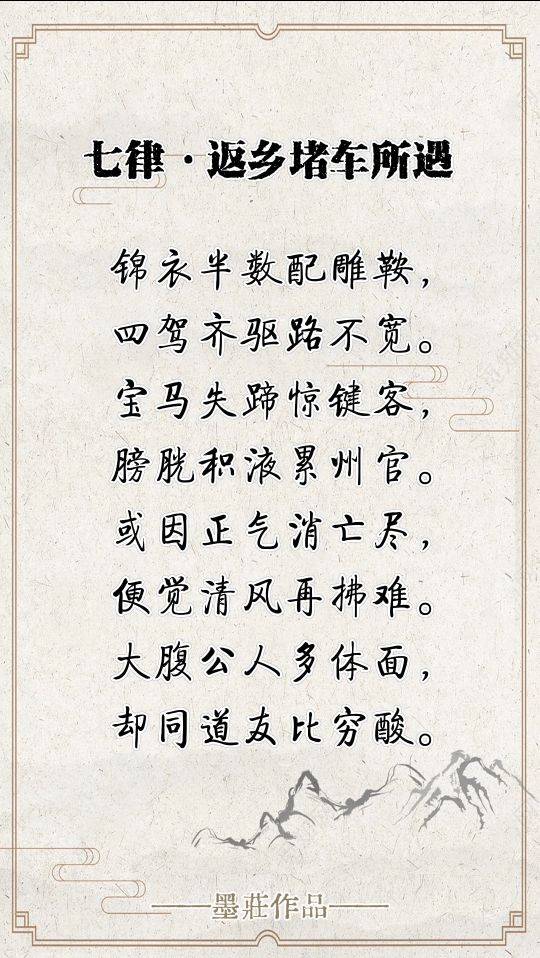 七律·返乡堵车所遇
锦衣半数配雕鞍，
四驾齐驱路不宽。
宝马失蹄惊键客，
膀胱积液累州官。
或因正气消亡尽，
便觉清风再拂难。
大腹公人多体面，
却同道友比穷酸。
墨莊作品